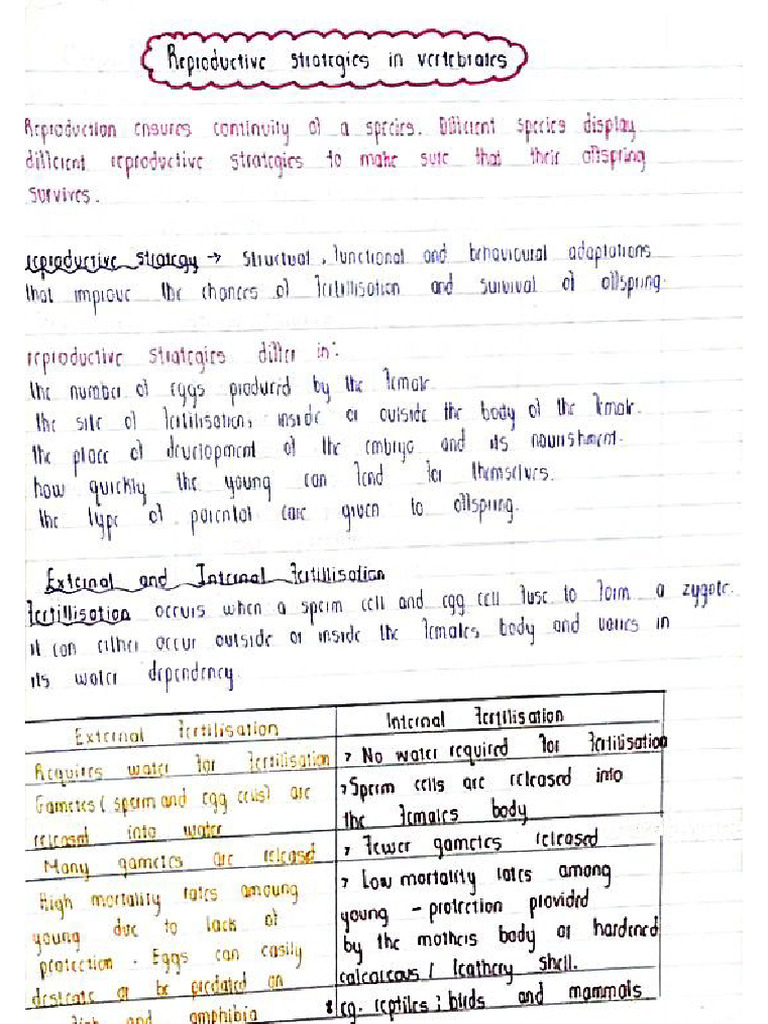 Reproductive strategies in vertebrates
Reproduction ensures continuity of a species. Different species display
different reproductive strategies to make sure that their offspring
survives.
reproductive strategy → structual, functional and behavioural adaptations
that improve the chances of fertillisation and survival of offspring.
reproductive strategies differ in:
the number of eggs produced by the female.
the site of fertilisation, inside or outside the body of the female.
the place of development of the embryo and its nourishment.
how quickly the young can fend for themselves.
the type of parental care given to offspring.
External and Internal fertillisation
fertillisation occurs when a sperm cell and egg cell fuse to form a zygote.
it can either occur outside or inside the females body and varies in
its water dependency.
External fertilisation
Requires water for fertilisation
Gametes (sperm and egg cells) are
released into water
Many gametes are released
High mortality rates amoung
young due to lack of
protection. Eggs can easily
desicate or be predated on
fish and amphibia
Internal fertilisation
> No water required for fertilisation
> Sperm cells are released into
the females body
> Fewer gametes released
> Low mortality rates among
young - protection provided
by the mothers body or hardened
calcareous / leathery shell.
eg. reptiles; birds and mammals